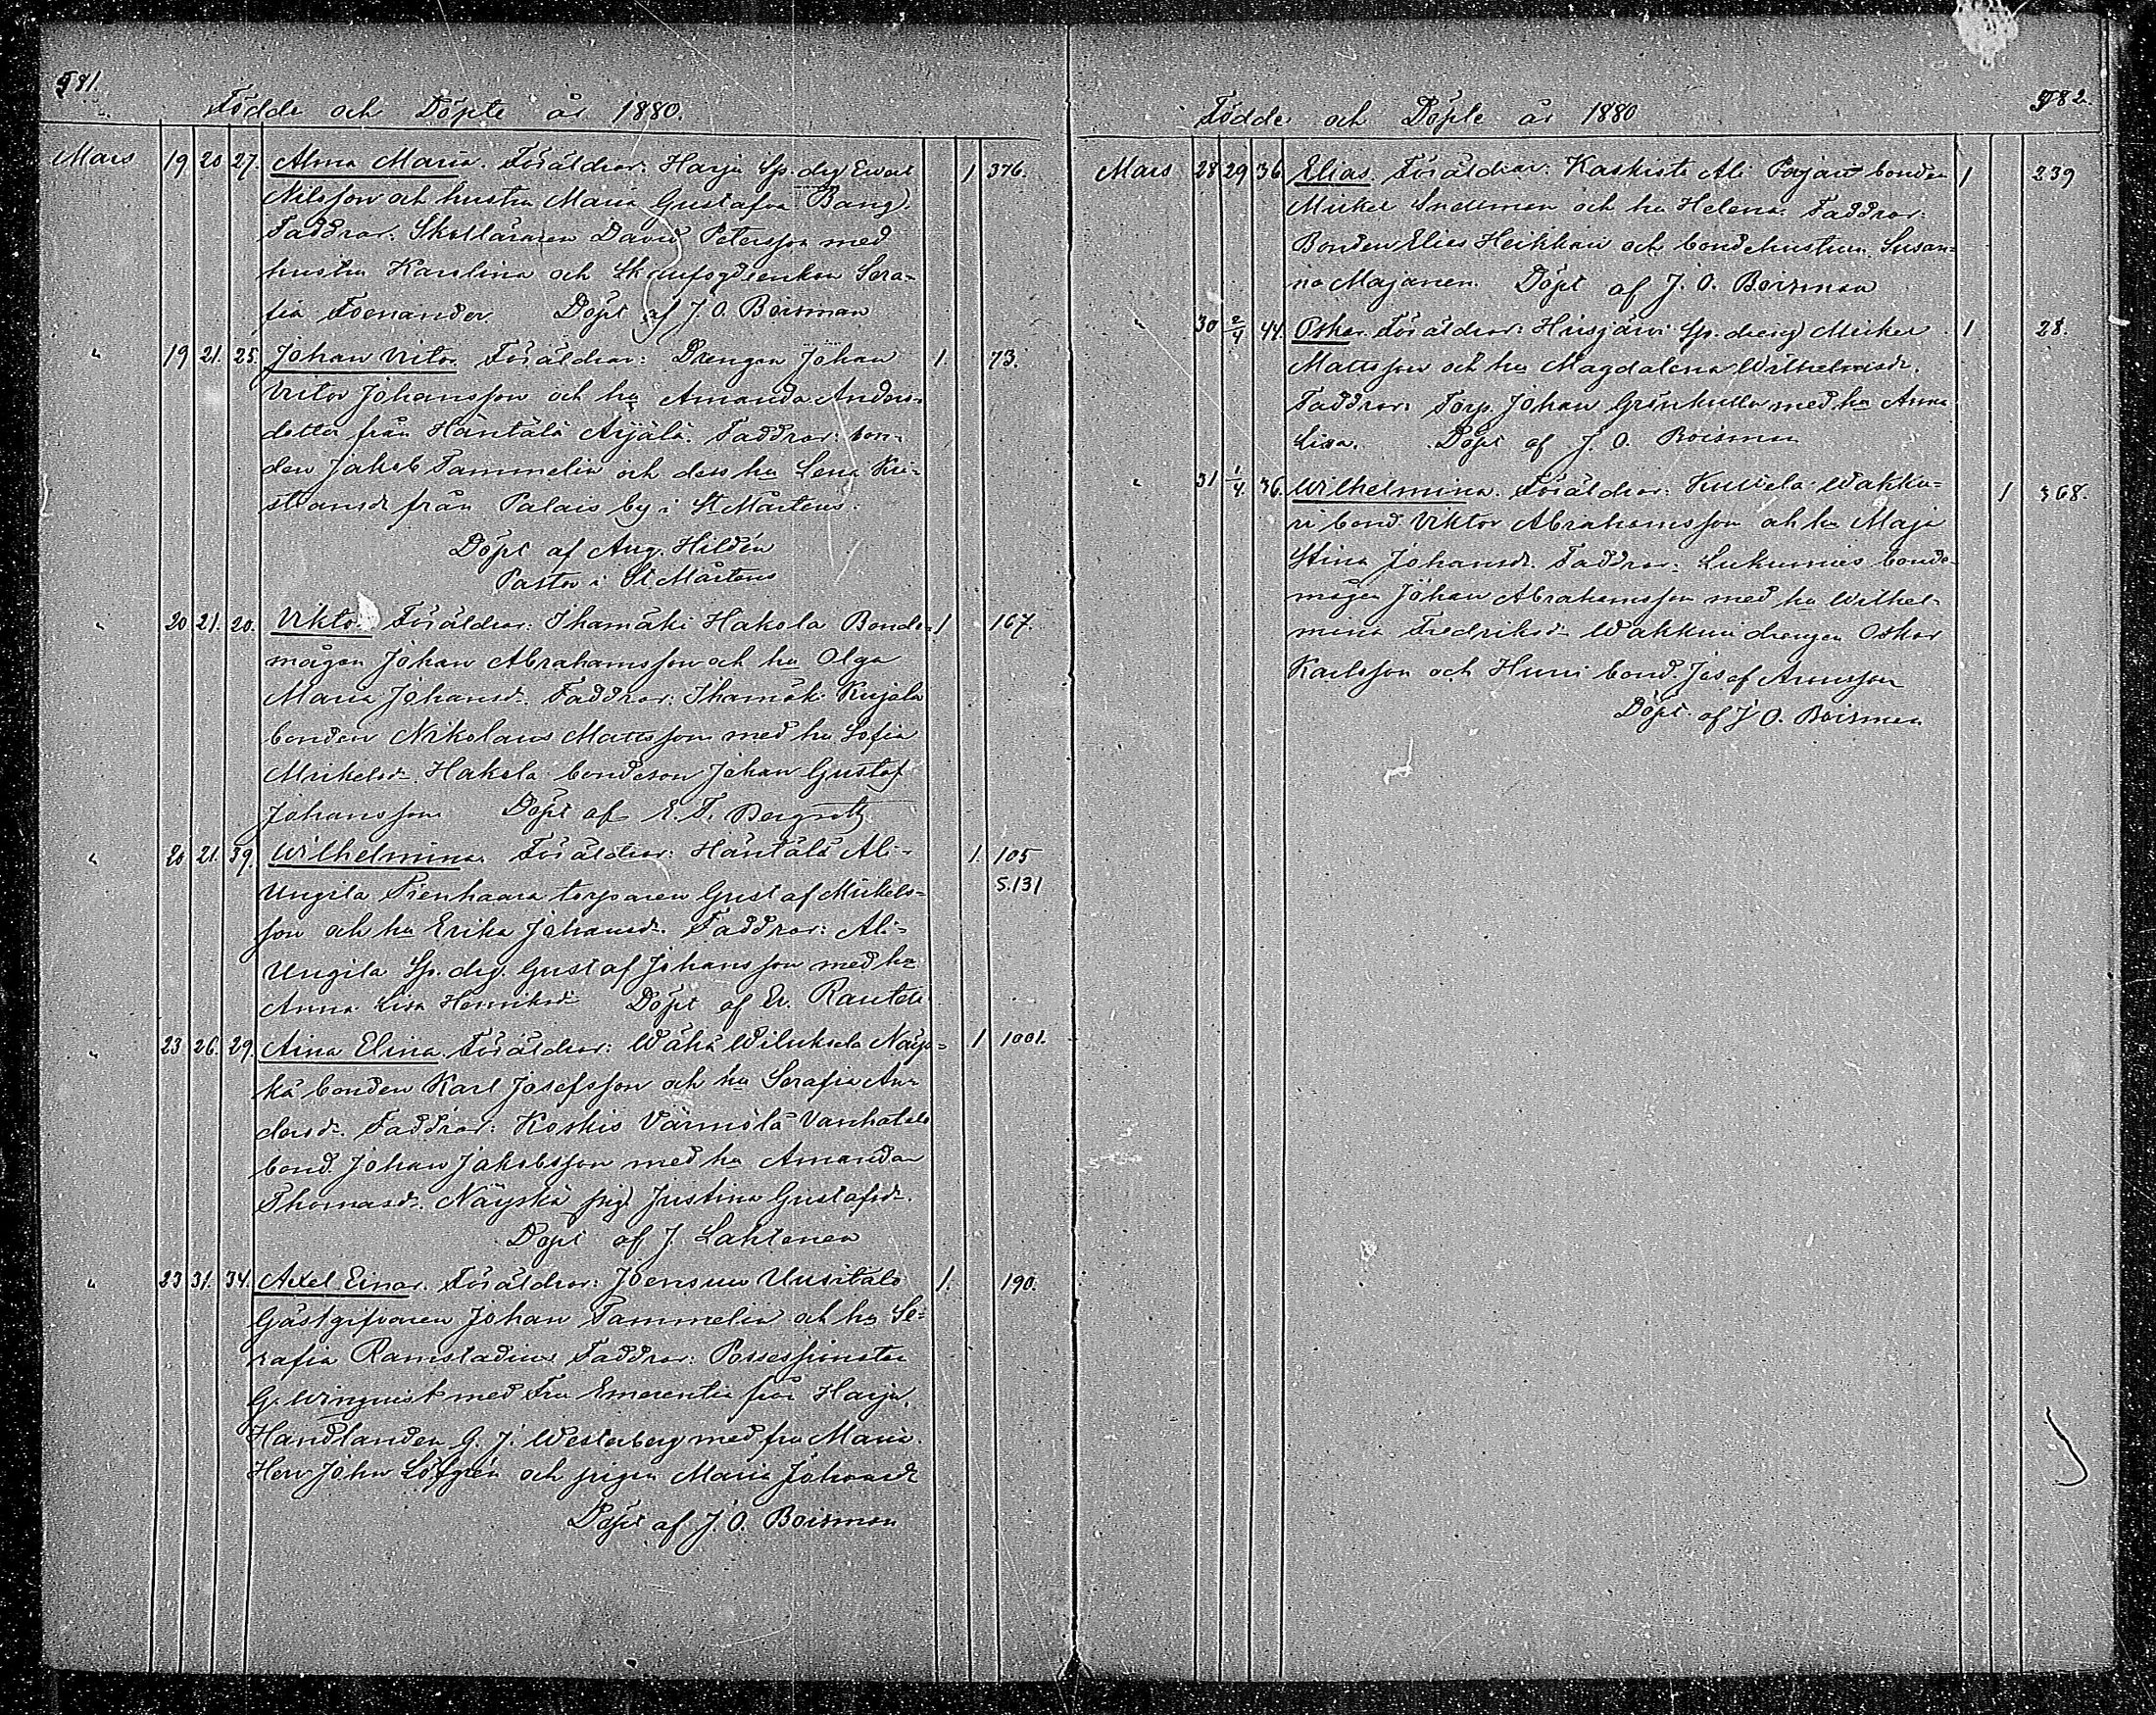 581.
Födde och Döpte år 1880.
Mars 19 20 27. Alma Maria. Föräldrar: Harju Sp. drg Evert 1 376.
Nilsson och hustru Maria Gustafva Bang.
Faddrar: Skolläraren David Petersson med
hustru Karolina och Skoufogdeenkan Sera-
fia Fornander. Döpt af J. O. Boisman
" 19 21. 25. Johan Vitor Föräldrar: Drengen Johan 1. 73.
Vitor Johansson och hu Amanda Anders-
dotter från Häntälä Äijälä. Faddrar: bon-
den Jakob Tammelin och dess hu Lena Kri-
stiansdr från Palais by i St Mårtens.
Döpt af Aug. Hildén
Pastor i St Mårtens
" 20 21. 20. Viktor Föräldrar: Ihamäki Hakola Bonde- 1 167.
mågen Johan Abrahamsson och hu Olga
Maria Johansdr. Faddrar: Ihamäki Kujala
bonden Nikolaus Mattsson med hu Sofia
Mickelsdr Hakola bondeson Johan Gustaf
Johansson Döpt af E. F. Bergroth
" 20 21. 39. Wilhelmina. Föräldrar: Häntälä Ali- 1. 105
S. 131
Ungila Pienhaara torparen Gustaf Mickels-
son och hu Erika Johansdr. Faddrar: Ali-
Ungila Sp. drg. Gustaf Johansson med hu
Anna Lisa Henriksdr Döpt af Er. Rautell
" 23 26. 29. Aina Elina. Föräldrar: Wähä Wiluksela Näys- 1 1001.
kä bonden Karl Josefsson och hu Serafia An-
dersdr. Faddrar: Koskis Värmälä Vanhatalo
bond. Johan Jakobsson med hu Amanda
Thomasdr. Näyskä pig. Justina Gustafsdr.
Döpt af J. Lahtonen
" 23 31. 34. Axel Einar. Föräldrar: Joensuu Uusitalo 1. 190.
Gästgifvaren Johan Tammelin och hu Se-
rafia Ramstadius Faddrar: Possessionaten
G. Winquist med Fru Emerentia från Harju,
Handlanden G. J. Westerberg med fru Maria.
Herr John Löfgrén och pigan Maria Johansdr
Döpt af J. O. Boisman
582.
Födde och Döpte år 1880
Mars 28 29 36 Elias. Föräldrar: Kaskisto Ali Pajari bonden 1 239
Mickel Snellman och hu Helena. Faddrar:
Bonden Elias Heikkari och bondehustrun Susan-
na Majanen. Döpt af J. O. Boisman
" 30 2/4 44. Oskar. Föräldrar: Hirsjärvi Sp. dreng Mickel 1 28.
Mattsson och hu Magdalena Wilhelmsdr.
Faddrar: Torp. Johan Grönkulla med hu Anna
Lisa. Döpt af J. O. Boisman
" 31 1/4. 36. Wilhelmina. Föräldrar: Kuusela Wakku- 1 368.
ri bond. Viktor Abrahamsson och hu Maja
Stina Johansdr. Faddrar: Sukumies bonde-
mågen Johan Abrahamsson med hu Wilhel-
mina Fredriksdr Wakkuri drengen Oskar
Karlsson och Hurri bond. Josef Aronsson
Döpt af J. O. Boisman